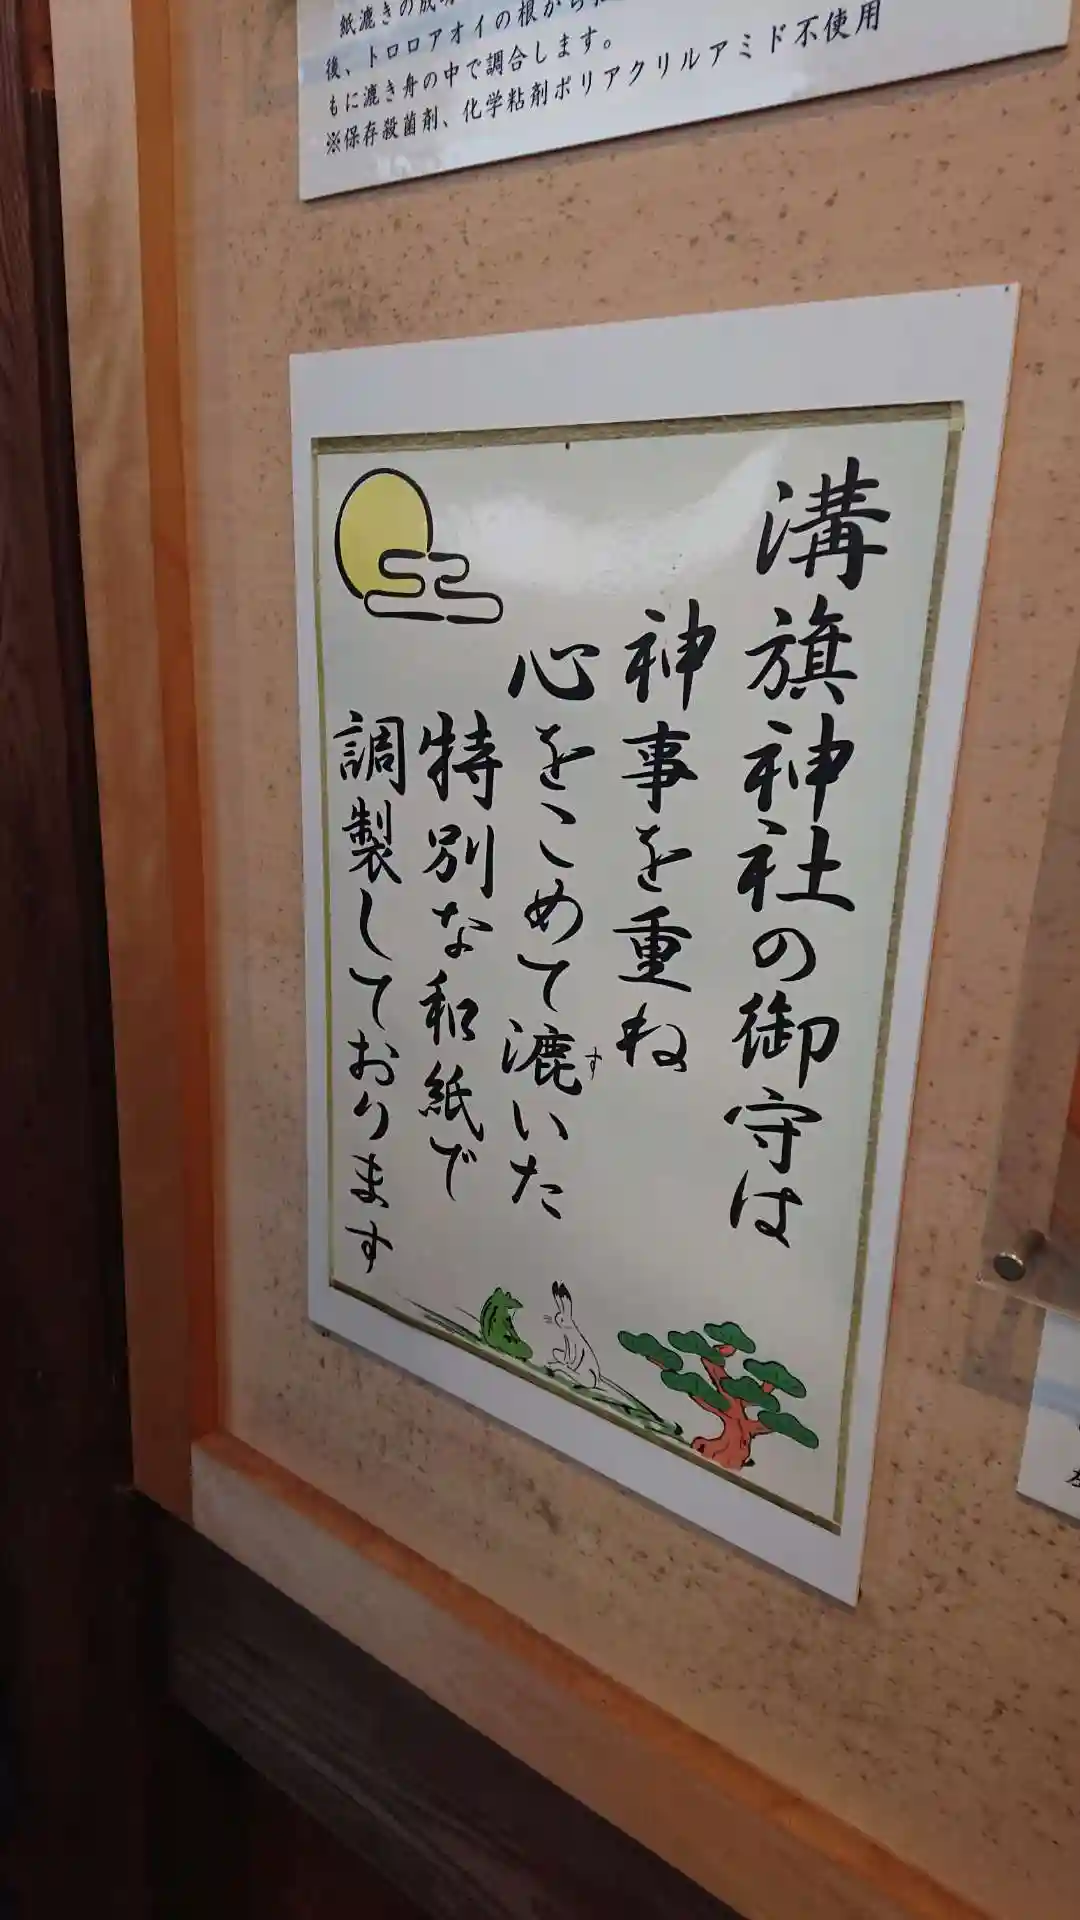 紙漉きの成
後、トロロアオイの根から
もに漉き舟の中で調合します。
※保存殺菌剤、化学粘剤ポリアクリルアミド不使用
溝旗神社の御守は
神事を重ね
心をこめて漉いた
す
特別な和紙で
調製しております